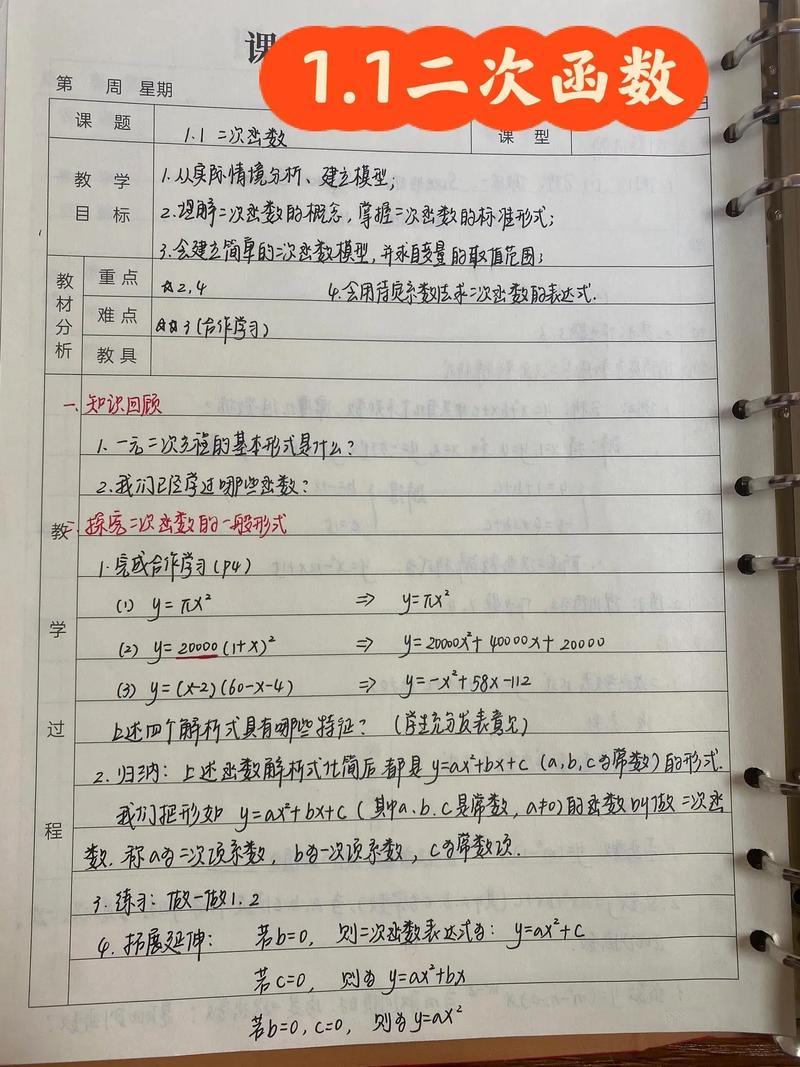 课
1.1二次函数
第 周 星期
日
课 题 1.1 二次函数 课 型
教 学 目 标
1.从实际情境分析、建立模型;
2.理解二次函数的概念,掌握二次函数的标准形式;
3.会建立简单的二次函数模型,并求自变量的取值范围;
教材分析
重 点 ☆2,4 4.会用待定系数法求二次函数的表达式.
难 点 ☆☆3(合作学习)
教 具
教 学 过 程
一、知识回顾
1.一元二次方程的基本形式是什么?
2.我们已经学过哪些函数?
二、探究二次函数的一般形式
1.完成合作学习(P4)
(1) y=πx² ⇒ y=πx²
(2) y=20000(1+x)² ⇒ y=20000x²+40000x+20000
(3) y=(x-2)(60-x-4) ⇒ y=-x²+58x-112
上述四个解析式具有哪些特征?(学生充分发表意见)
2.归纳:上述函数解析式化简后都是y=ax²+bx+c(a,b,c为常数)的形式.
我们把形如 y=ax²+bx+c(其中a.b.c是常数,a≠0)的函数叫做二次函
数.称a为二次项系数,b为一次项系数,c为常数项.
3.练习:做一做1.2
4.拓展延伸: 若b=0, 则二次函数表达式为: y=ax²+c
若c=0, 则为y=ax²+bx
若b=0,c=0, 则为y=ax²